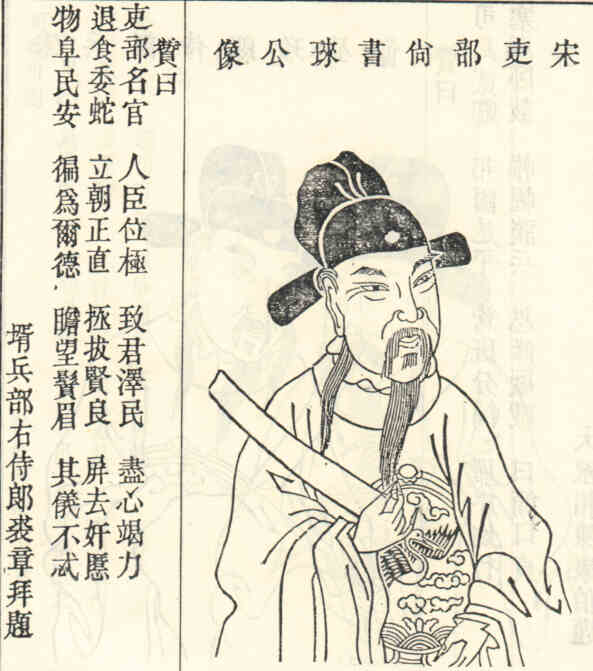 宋吏部尚書琜公像
贊曰
吏部名官 人臣位極 致君澤民 盡心竭力
退食委蛇 立朝正直 拯拔賢良 屏去奸慝
物阜民安 徧爲爾德 瞻望鬢眉 其儀不忒
壻兵部右侍郎裘章拜題